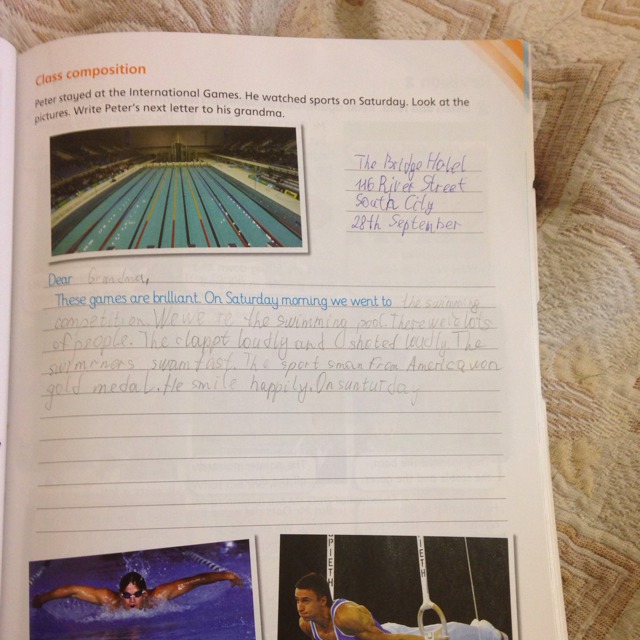 Class composition
Peter stayed at the International Games. He watched sports on Saturday. Look at the
pictures. Write Peter's next letter to his grandma.
The Bridge Hotel
116 River Street
South City
28th September
Dear Grandma,
These games are brilliant. On Saturday morning we went to the swimming
competition. We we re the swimming pool. There were lots
of people. The clappt loudly and shoted loudly. The
swimmers swam fast. The sport sman from America won
gold medal. He smile happily. On sunturday
SPIETH
IETH